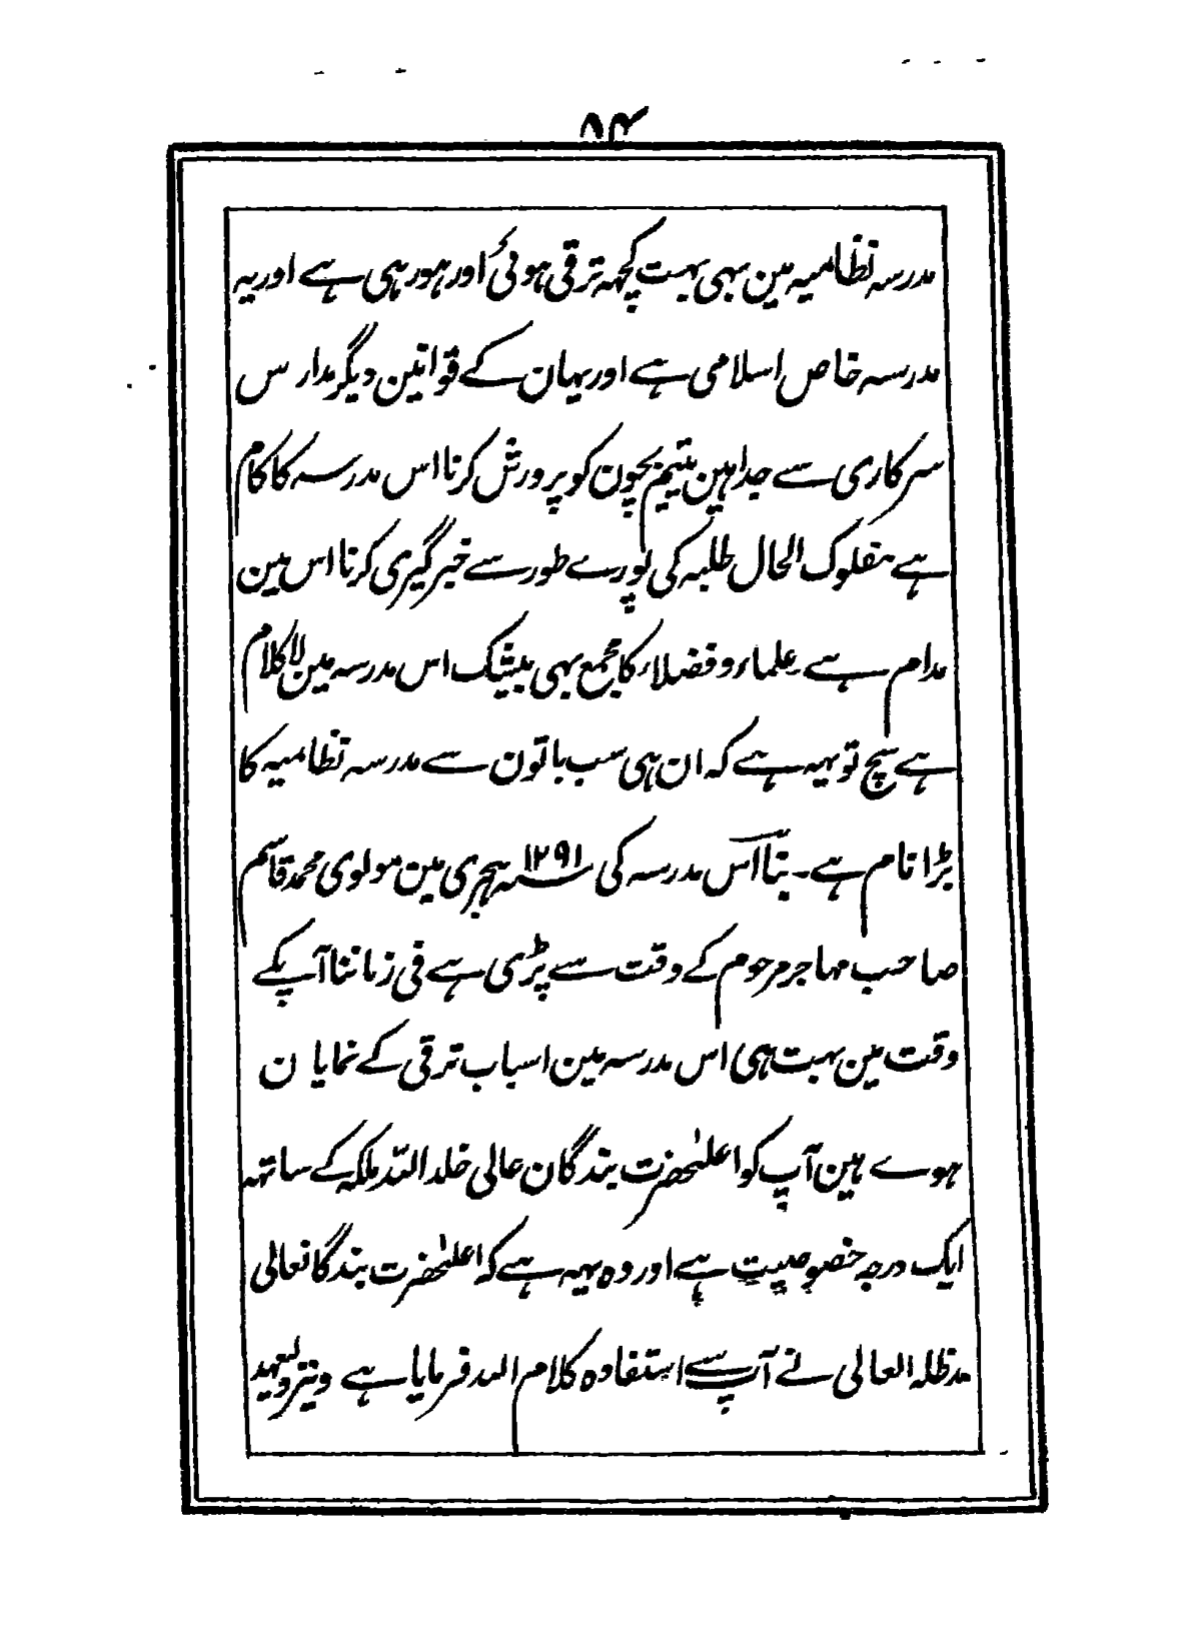 ۸۴
مدرسہ نظامیہ مین بہی بہت کچہہ ترقی ہوئی اور ہو رہی ہے اور یہ
مدرسہ خاص اسلامی ہے اور یہان کے قوانین دیگر مدارس
سرکاری سے جدا ہین یتیم بچون کو پرورش کرنا اس مدرسہ کا کام
ہے مفلوک الحال طلبہ کی پورے طور سے خبرگیری کرنا اس مین
مدام ہے علماء و فضلاء کا مجمع بہی بیشک اس مدرسہ مین لاکلام
ہے سچ تو یہہ ہے کہ ان ہی سب باتون سے مدرسہ نظامیہ کا
بڑا نام ہے۔ بنّا اس مدرسہ کی ۱۲۹۱سنہ ہجری مین مولوی محمد قاسم
صاحب مہاجر مرحوم کے وقت سے پڑی ہے فی زماننا آپکے
وقت مین بہت ہی اس مدرسہ مین اسباب ترقی کے نمایان
ہوے ہین آپ کو اعلٰحضرت بندگان عالی خلد اللہ ملکہ کے ساتہہ
ایک درجہ خصوصیت ہے اور وہ یہہ ہے کہ اعلٰحضرت بندگانعالی
مدظلہ العالی نے آپ سے استفادہ کلام اللہ فرمایا ہے و نیز ولیعہد